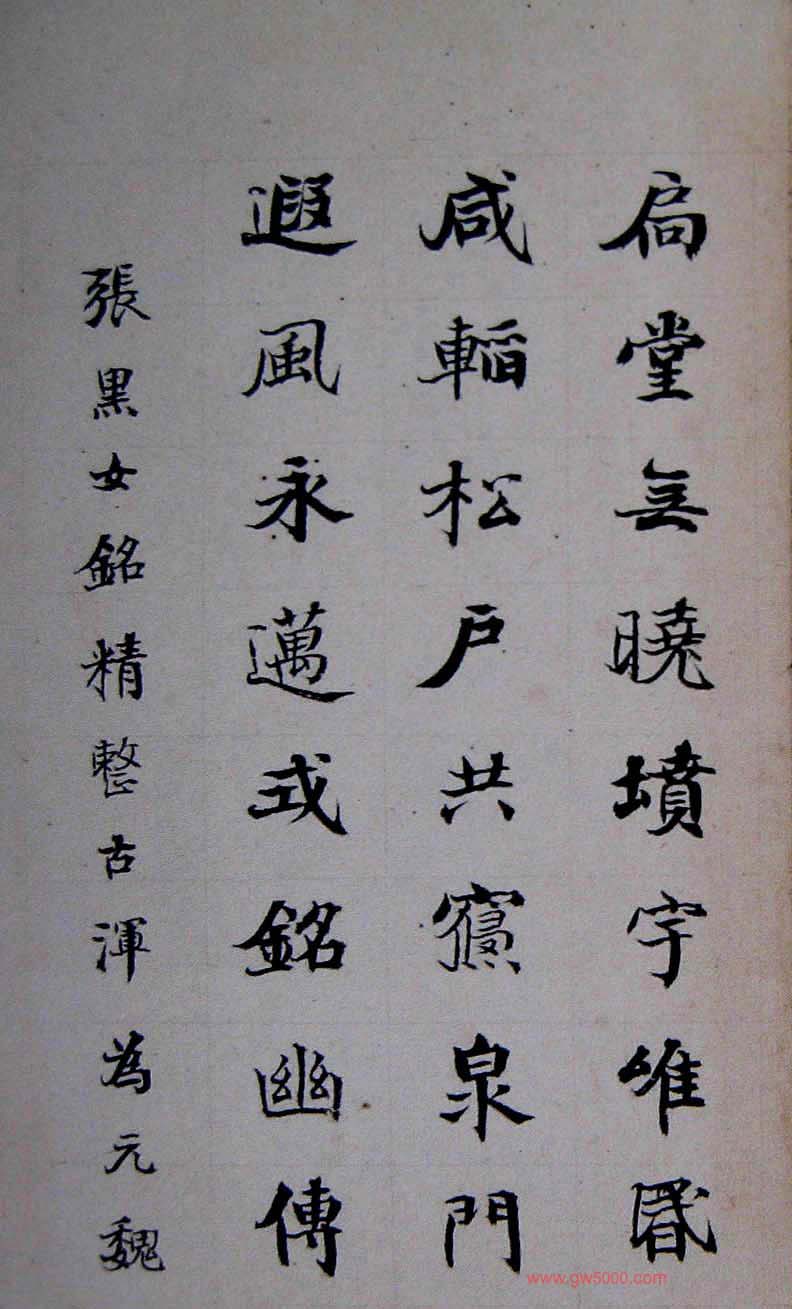 扃堂無曉墳宇唯昏
咸韜松戶共寢泉門
遐風永邁式銘幽傳
張黑女銘精整古渾為元魏
www.gw5000.com